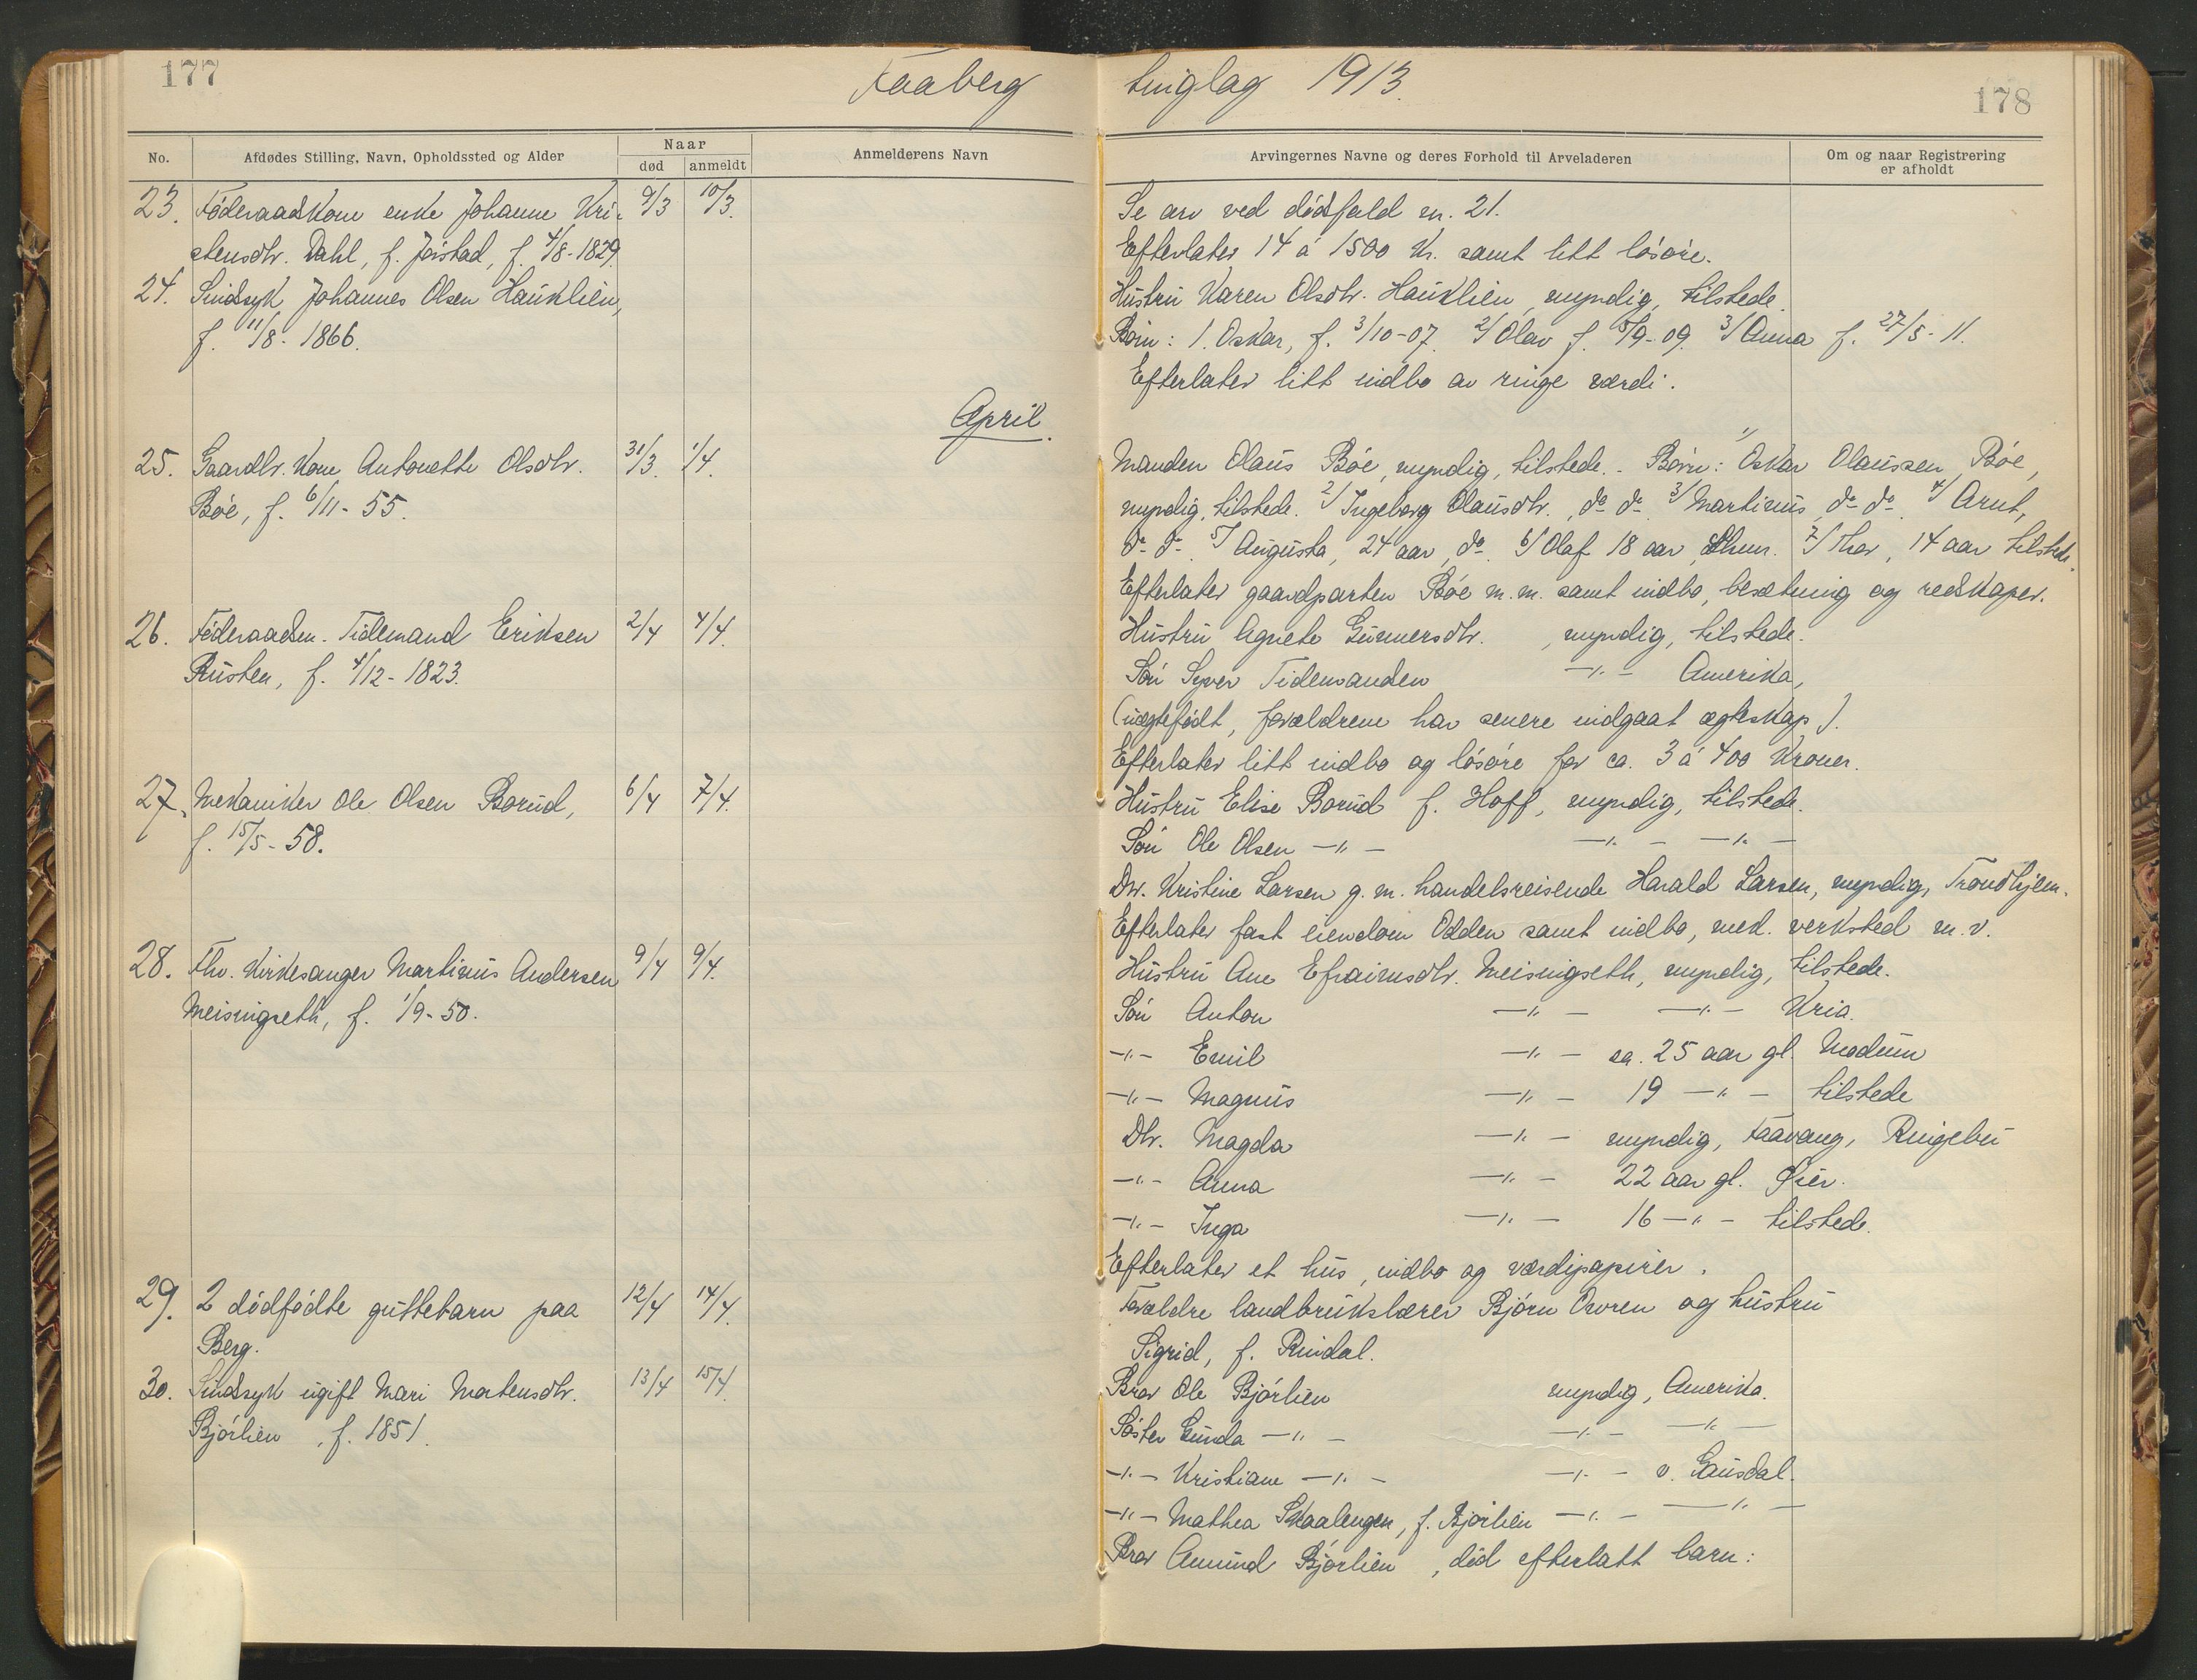 177
Faaberg
tinglag 1913.
178
No.
Afdødes Stilling, Navn, Opholdssted og Alder
Naar
død
anmeldt
Anmelderens Navn
Arvingernes Navne og deres Forhold til Arveladeren
Om og naar Registrering
er afholdt
23. Föderaadkone enke Johanne Kri- 9/3 10/3.
stensdtr. Dahl, f. Jörstad, f. 4/8-1829.
24. Sindsyk Johannes Olsen Hauklien,
f. 11/8-1866.
April.
25. Gaardbr. kone Antonette Olsdtr. 31/3. 1/4.
Böe, f. 6/11-55.
26. Föderaadsm. Tidemand Eriksen 2/4 4/4.
Rusten, f. 4/12-1823.
27. Mekaniker Ole Olsen Borud, 6/4 7/4.
f. 15/5-58.
28. Fhv. Kirkesanger Martinus Andersen 9/4 9/4.
Meisingseth, f. 1/9-50.
29. 2 dödfödte guttebarn paa 12/4 14/4.
Berg.
30. Sindsyk ugift Mari Mortensdtr. 13/4 15/4.
Bjørlien, f. 1851.
Se arv ved dödsfald nr. 21.
Efterlater 14 á 1500 Kr. samt litt lösöre.
Hustru Karen Olsdtr. Hauklien, myndig, tilstede.
Börn: 1. Oskar, f. 3/10-07. 2/ Olav f. 5/9-09. 3/ Anna f. 27/5-11.
Efterlater litt indbo av ringe værdi.
Manden Olaus Böe, myndig, tilstede. - Börn: 1/ Oskar Olaussen Böe,
myndig, tilstede. 2/ Ingeborg Olausdtr., do do. 3/ Martinus, do do. 4/ Arnt,
do do. 5/ Augusta, 24 aar, do. 6/ Olaf 18 aar, Lhmr. 7/ Thor, 14 aar tilstede.
Efterlater gaardparten Böe m.m. samt indbo, besætning og redskaper.
Hustru Agnete Gunnersdtr. , myndig, tilstede.
Sön Syver Tidemandsen -"- Amerika,
(uægtefödt, forældrene har senere indgaat ægteskap).
Efterlater litt indbo og lösöre for ca. 3 á 400 Kroner.
Hustru Elise Borud f. Hoff, myndig, tilstede.
Sön Ole Olsen -"- -"- -"-
Dtr. Kristine Larsen g. m. handelsreisende Harald Larsen, myndig, Trondhjem.
Efterlater fast eiendom Odden samt indbo, mek. verksted m.v.
Hustru Ane Efraimsdtr. Meisingseth, myndig, tilstede.
Sön Anton -"- -"- Kria.
-"- Emil -"- ca. 25 aar gl. Modum
-"- Magnus -"- 19 -"- tilstede
Dtr. Magda -"- myndig, Faavang, Ringebu
-"- Anna -"- 22 aar gl. Øier.
-"- Inga -"- 16 -"- tilstede.
Efterlater et hus, indbo og værdipapirer.
Forældre landbrukslærer Björn Ovren og hustru
Sigrid, f. Rindal.
Bror Ole Bjørlien myndig, Amerika.
Söster Gunda -"- -"- -"-
-"- Kristiane -"- -"- v. Gausdal.
-"- Mathea Skaalengen, f. Bjørlien -"- -"-
Bror Amund Bjørlien, död efterlatt barn: